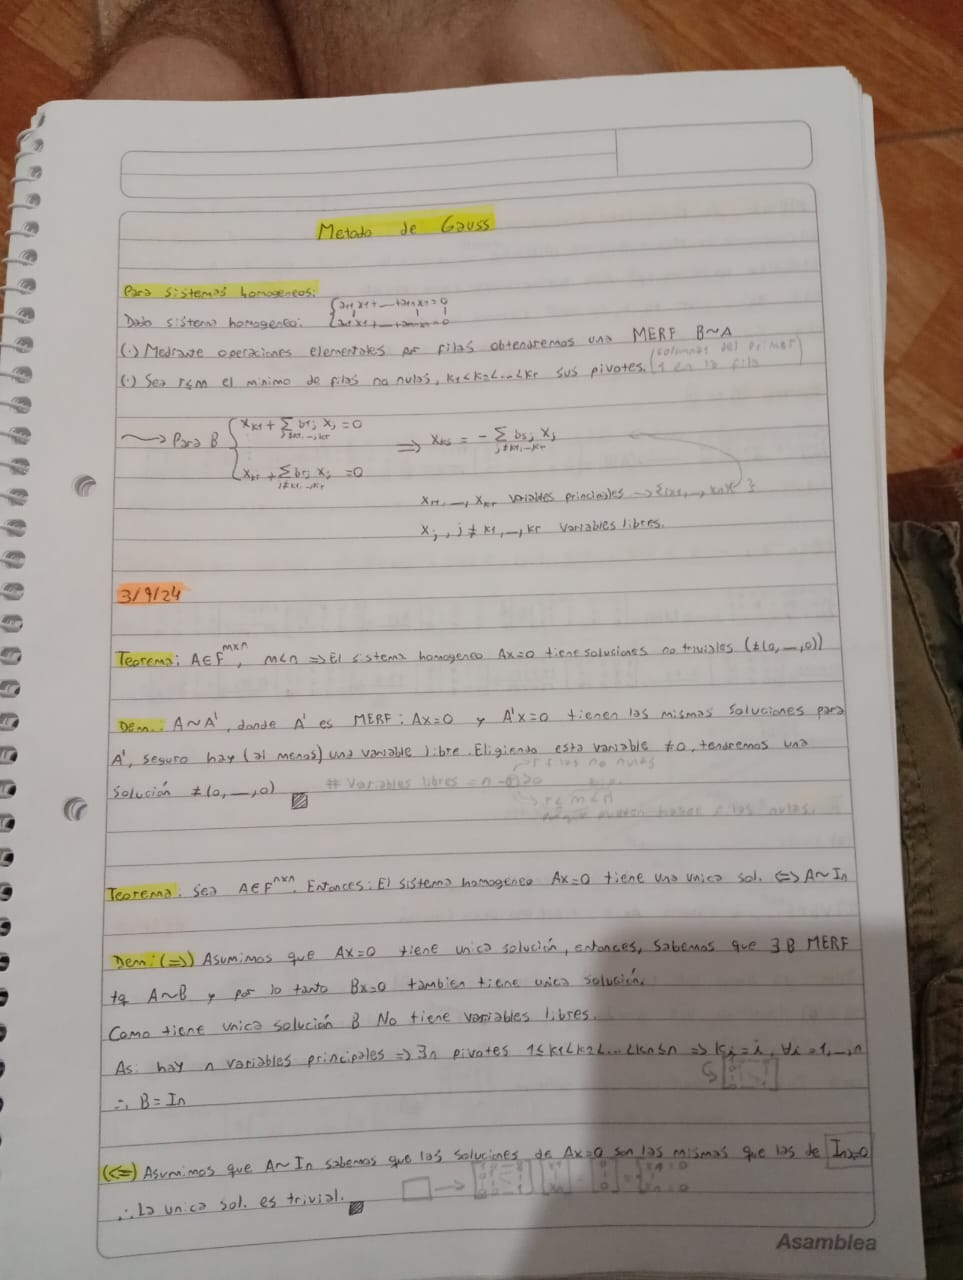 Metodo de Gauss
Para sistemas homogeneos:
Dado sistema homogeneo: { a11 x1 + ... + a1n xn = 0
am1 x1 + ... + amn xn = 0
(·) Mediante operaciones elementales por filas obtendremos una MERF B~A
(·) Sea r≤m el minimo de filas no nulas, k1<k2<...<kr sus pivotes. (columnas del primer
1 en la fila)
⟿ Para B { xk1 + Σ b1j xj = 0
j≠k1,...,kr
⟹ xks = - Σ bsj xj
j≠k1,...,kr
xkr + Σ brj xj = 0
j≠k1,...,kr
xk1, ..., xkr variables principales
xj, j ≠ k1, ..., kr variables libres.
3/9/24
Teorema: A∈F^mxn, m<n ⟹ El sistema homogeneo Ax=0 tiene soluciones no triviales (≠(0,...,0))
Dem.: A~A', donde A' es MERF: Ax=0 y A'x=0 tienen las mismas soluciones para
A', seguro hay (al menos) una variable libre. Eligiendo esta variable ≠0, tendremos una
→ r filas no nulas
solución ≠(0,...,0) # Variables libres = n - r > 0
→ r ≤ m < n
pueden haber filas nulas.
Teorema: Sea A∈F^nxn. Entonces: El sistema homogeneo Ax=0 tiene una unica sol. ⟺ A~In
Dem: (⟹) Asumimos que Ax=0 tiene unica solución, entonces, sabemos que ∃ B MERF
tq A~B y por lo tanto Bx=0 tambien tiene unica solución.
Como tiene unica solución B No tiene variables libres.
As: hay n variables principales ⟹ ∃n pivotes 1≤k1<k2<...<kn≤n ⟹ ki=i, ∀i=1,...,n
∴ B=In
(⟸) Asumimos que A~In sabemos que las soluciones de Ax=0 son las mismas que las de Inx=0
∴ La unica sol. es trivial.
Asamblea